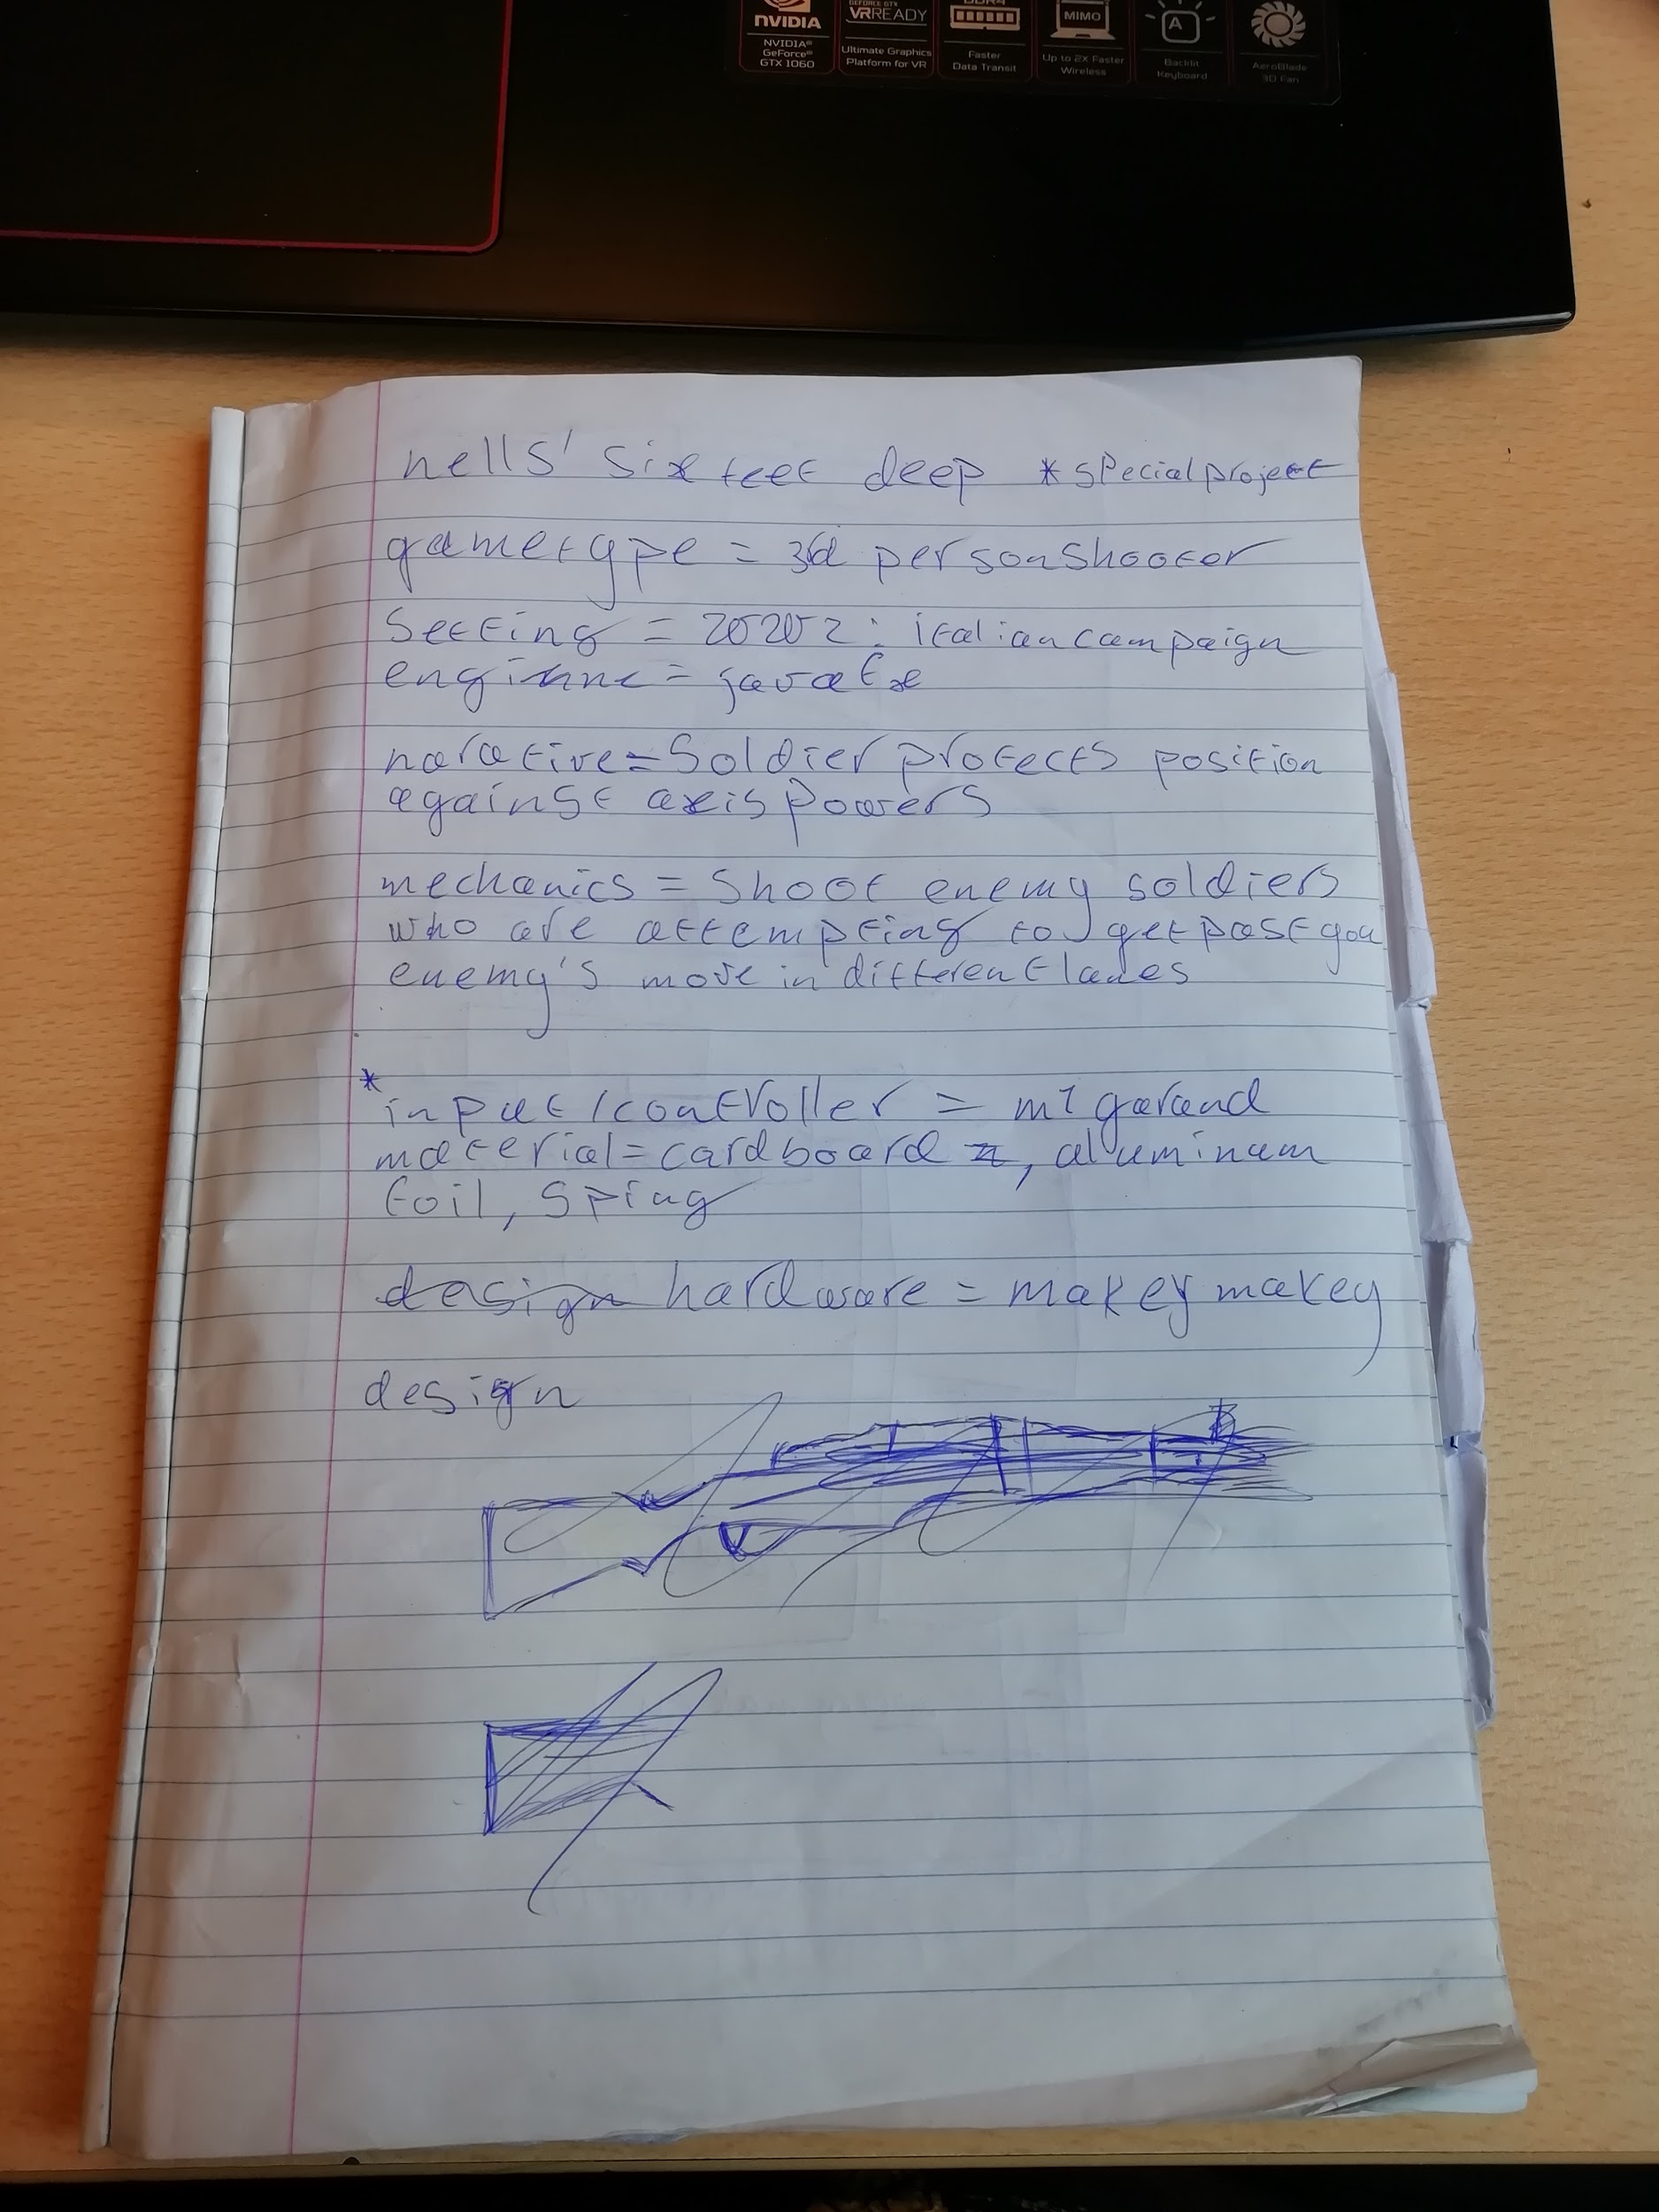 NVIDIA
NVIDIA®
GeForce®
GTX 1060
GEFORCE GTX
VR READY
Ultimate Graphics
Platform for VR
DDR4
Faster
Data Transit
MIMO
Up to 2X Faster
Wireless
A
Backlit
Keyboard
AeroBlade
3D Fan
hells' six feet deep * special project
gametype = 3d person shooter
Setting = : italian campaign
enginne = javafx
narative = Soldier protects position
against axis powers
mechanics = Shoot enemy soldiers
who are attempting to get past you
enemy's move in different lanes
*
input/controller = m1 garand
material = cardboard , aluminum
foil, Sping
design hardware = makey makey
design